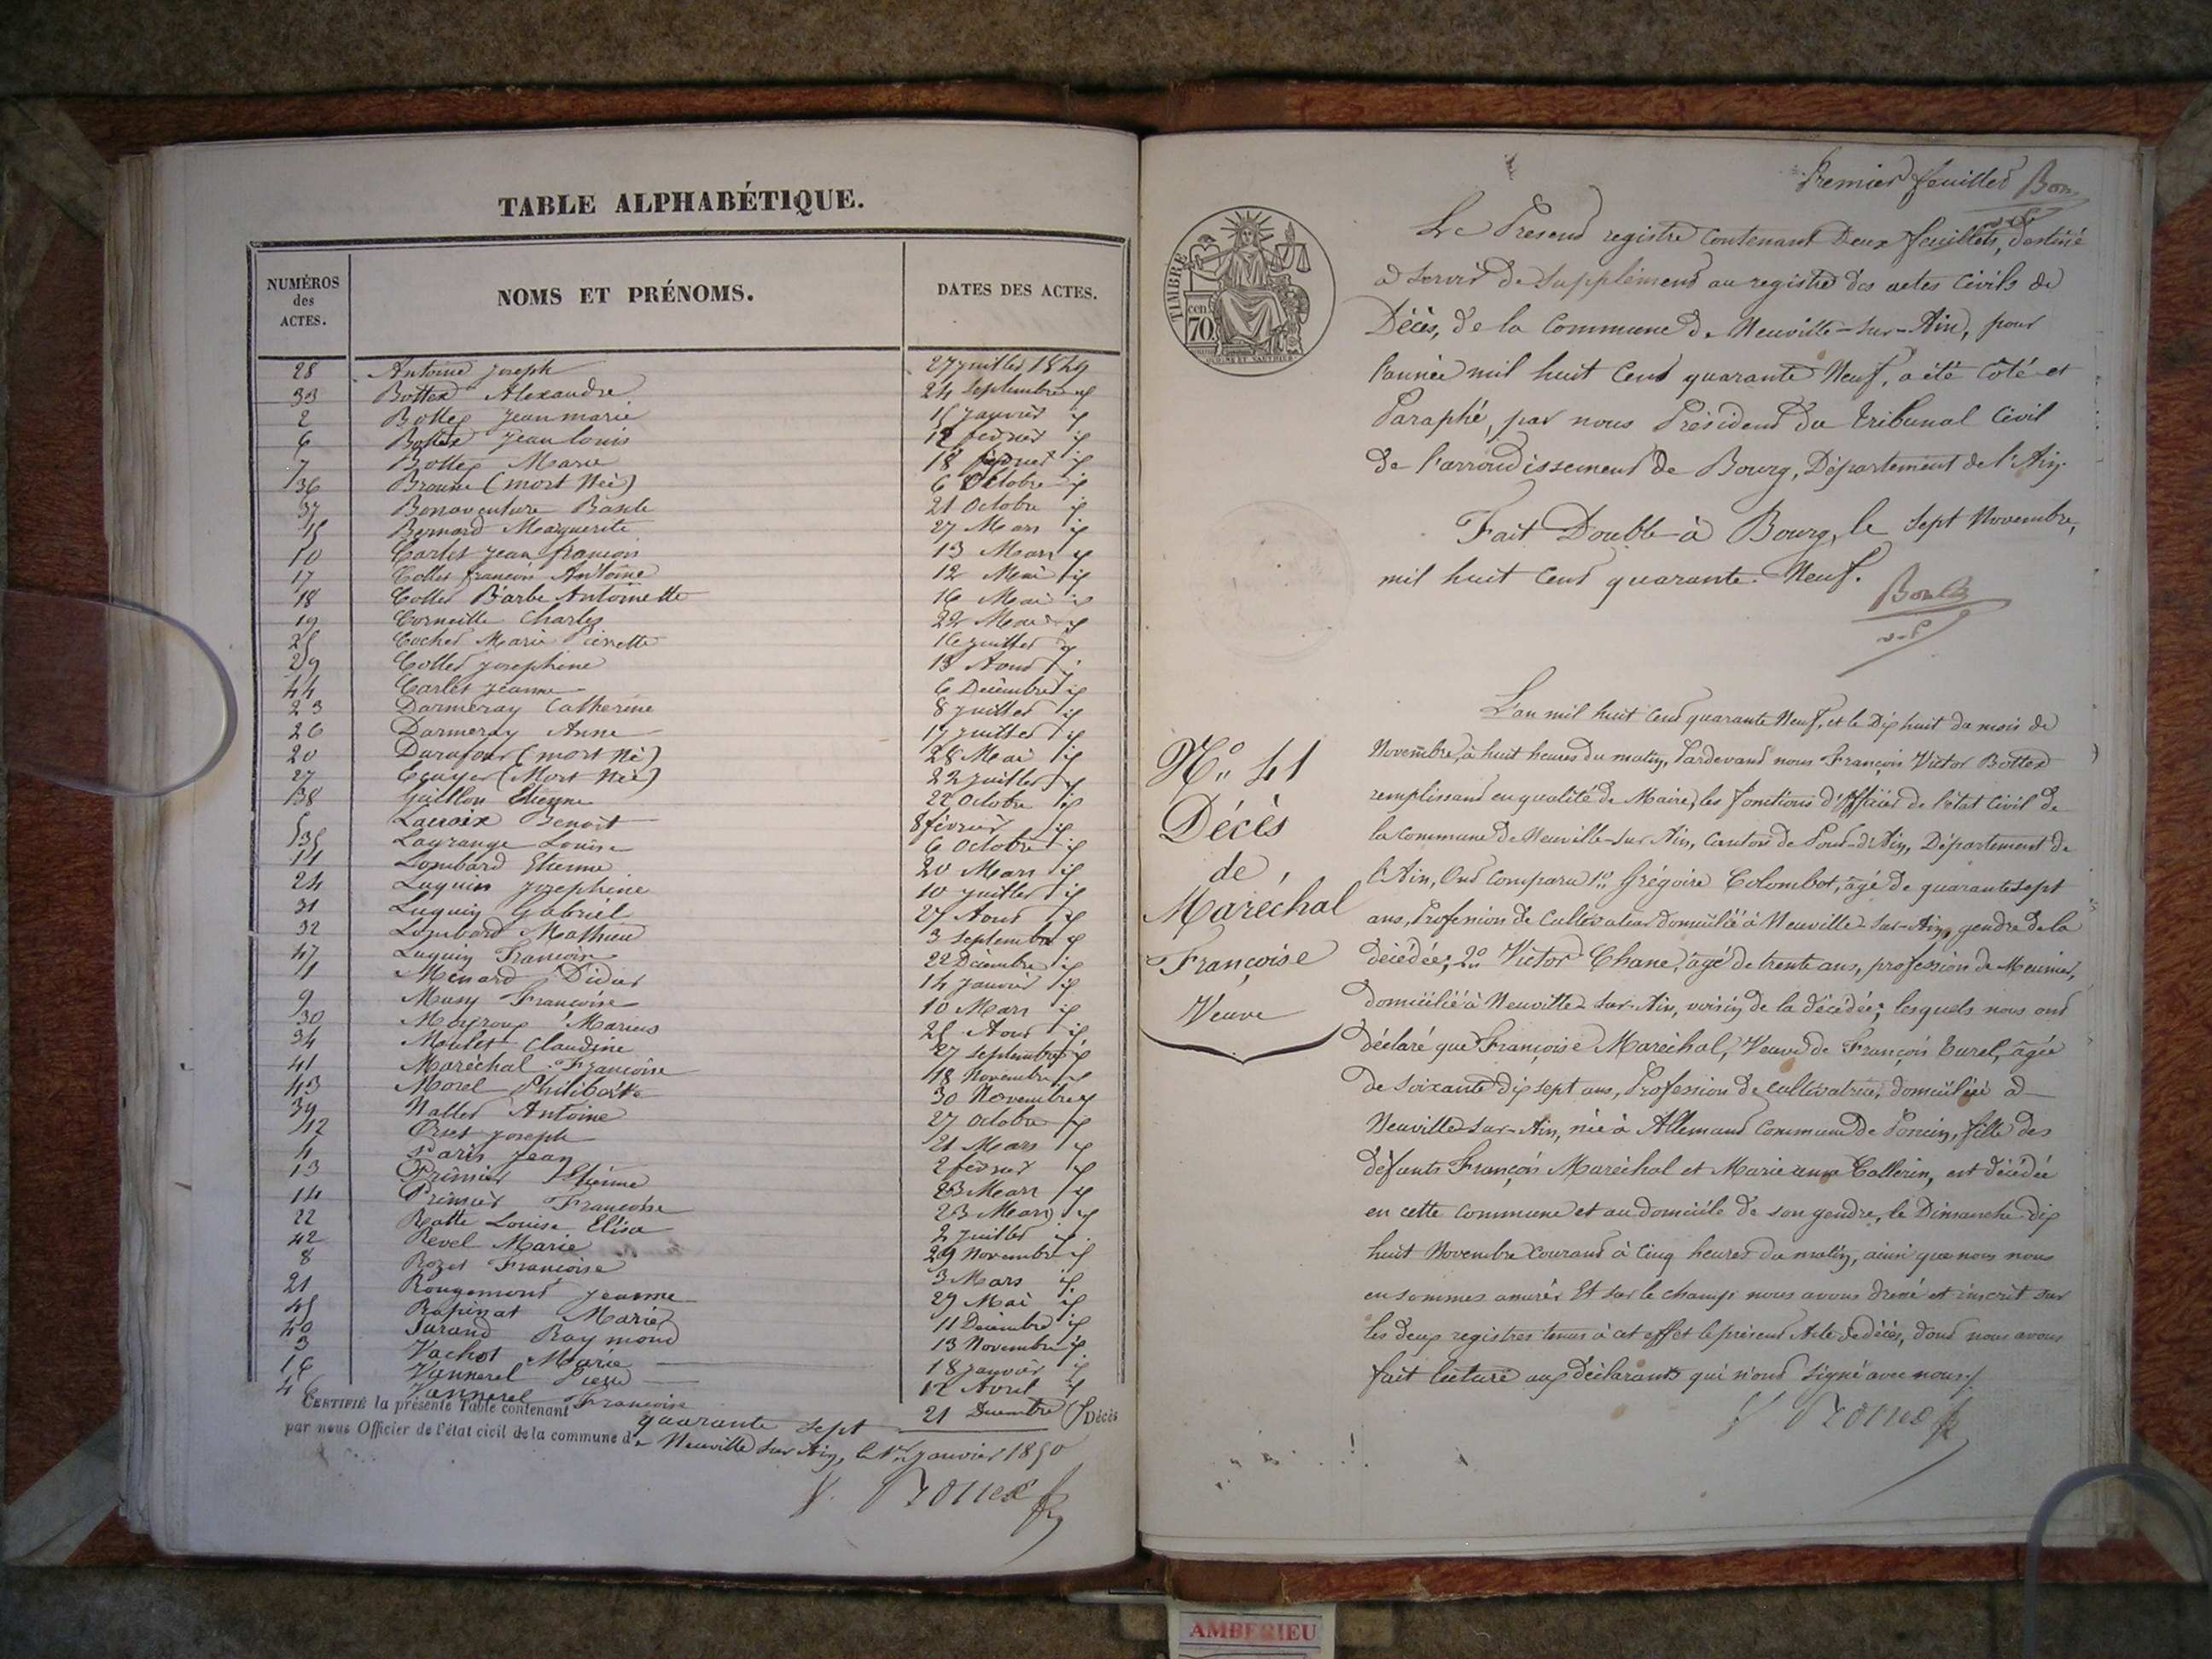 TABLE ALPHABÉTIQUE.
NUMÉROS des ACTES. NOMS ET PRÉNOMS. DATES DES ACTES.
28 Antoine Joseph 27 juillet 1849
33 Bottex Alexandre 24 Septembre id
2 Bottex Jean marie 15 Janvier id
6 Bottex Jean Louis 12 février id
7 Bottex Marie 18 février id
36 (mort Né) 6 Octobre id
37 Bonaventure 21 Octobre id
15 Bernard Marguerite 27 Mars id
10 Carlet Jean françois 13 Mars id
17 Collet françois Antoine 12 Mai id
18 Collet Barbe Antoinette 16 Mai id
19 Corneille Charles 22 Mai id
25 Cochet Marie Pierrette 16 juillet id
29 Collet Joséphine 13 Aout id
44 Carlet Jeanne 6 Décembre id
23 Darmeray Catherine 8 juillet id
26 Darmeray Anne 17 juillet id
20 Durafour (mort Né) 28 Mai id
27 Ecuyer (Mort Né) 22 juillet id
38 Guillon Etienne 22 Octobre id
5 Lacroix Benoit 8 février id
35 Lagrange Louise 6 Octobre id
11 Lombard Etienne 20 Mars id
24 Luquin Joséphine 10 juillet id
31 Luquin Gabriel 27 Aout id
32 Lombard Mathieu 3 Septembre id
47 Luquin Françoise 22 Décembre id
1 Ménard Didier 14 Janvier id
9 Musy Françoise 10 Mars id
30 Marius 25 Aout id
34 Moulet Claudine 27 Septembre id
41 Maréchal Françoise 18 Novembre id
43 Morel Philiberte 30 Novembre id
39 Nallet Antoine 27 Octobre id
12 Orset Joseph 21 Mars id
4 Paris Jean 2 février id
13 Prémier Etienne 23 Mars id
14 Prémier Françoise 23 Mars id
22 Ratte Louise Elisa 2 Juillet id
42 Revel Marie 29 Novembre id
8 Rozet Françoise 3 Mars id
21 Rougemont Jeanne 29 Mai id
45 Rapinat Marie 11 Décembre id
40 Raymond 13 Novembre id
3 Vachot Marie 18 Janvier id
16 Vannerel Pierre 12 Avril id
46 Vannerel Françoise 21 Décembre id
CERTIFIÉ la présente Table contenant quarante sept Décès
par nous Officier de l'état civil de la commune de Neuville sur Ain, le 1er Janvier 1850
V. Bottex
Premier feuillet Bon
TIMBRE
70 cen
Le Présent registre contenant Deux feuillets, destiné
à servir de Supplément au registre des actes Civils de
Décès, de la Commune de Neuville-sur-Ain, pour
l'année mil huit Cent quarante Neuf, a été Coté et
Paraphé, par nous Président du tribunal Civil
de l'arrondissement de Bourg, Département de l'Ain.
Fait Double à Bourg, le Sept Novembre,
mil huit Cent quarante Neuf.
v-P
No 41
Décès
de
Maréchal
Françoise
Veuve
L'an mil huit Cent quarante Neuf, et le Dix huit du mois de
Novembre, à huit heures du matin, Pardevant nous François Victor Bottex
remplissant en qualité de Maire, les fonctions d'officier de l'état Civil de
la Commune de Neuville-sur-Ain, Canton de Pont-d'Ain, Département de
l'Ain, Ont Comparu 1o Grégoire Colombet, âgé de quarante sept
ans, Profession de Cultivateur domicilié à Neuville-sur-Ain, gendre de la
décédée; 2o Victor Chane, âgé de trente ans, profession de Meunier,
domicilié à Neuville-sur-Ain, voisin de la décédée; lesquels nous ont
déclaré que Françoise Maréchal, Veuve de François Curel, âgée
de Soixante dix sept ans, Profession de cultivatrice, domiciliée à
Neuville-sur-Ain, née à Allemand Commune de Poncin, fille des
défunts François Maréchal et Marie anne Callerin, est décédée
en cette Commune et au domicile de son gendre, le Dimanche dix
huit Novembre Courant à Cinq heures du matin, ainsi que nous nous
en sommes assurés Et sur le champ nous avons dressé et inscrit sur
les deux registres tenus à cet effet le présent Acte de décès, dont nous avons
fait lecture aux déclarants qui n'ont Signé avec nous./.
V. Bottex
AMBERIEU